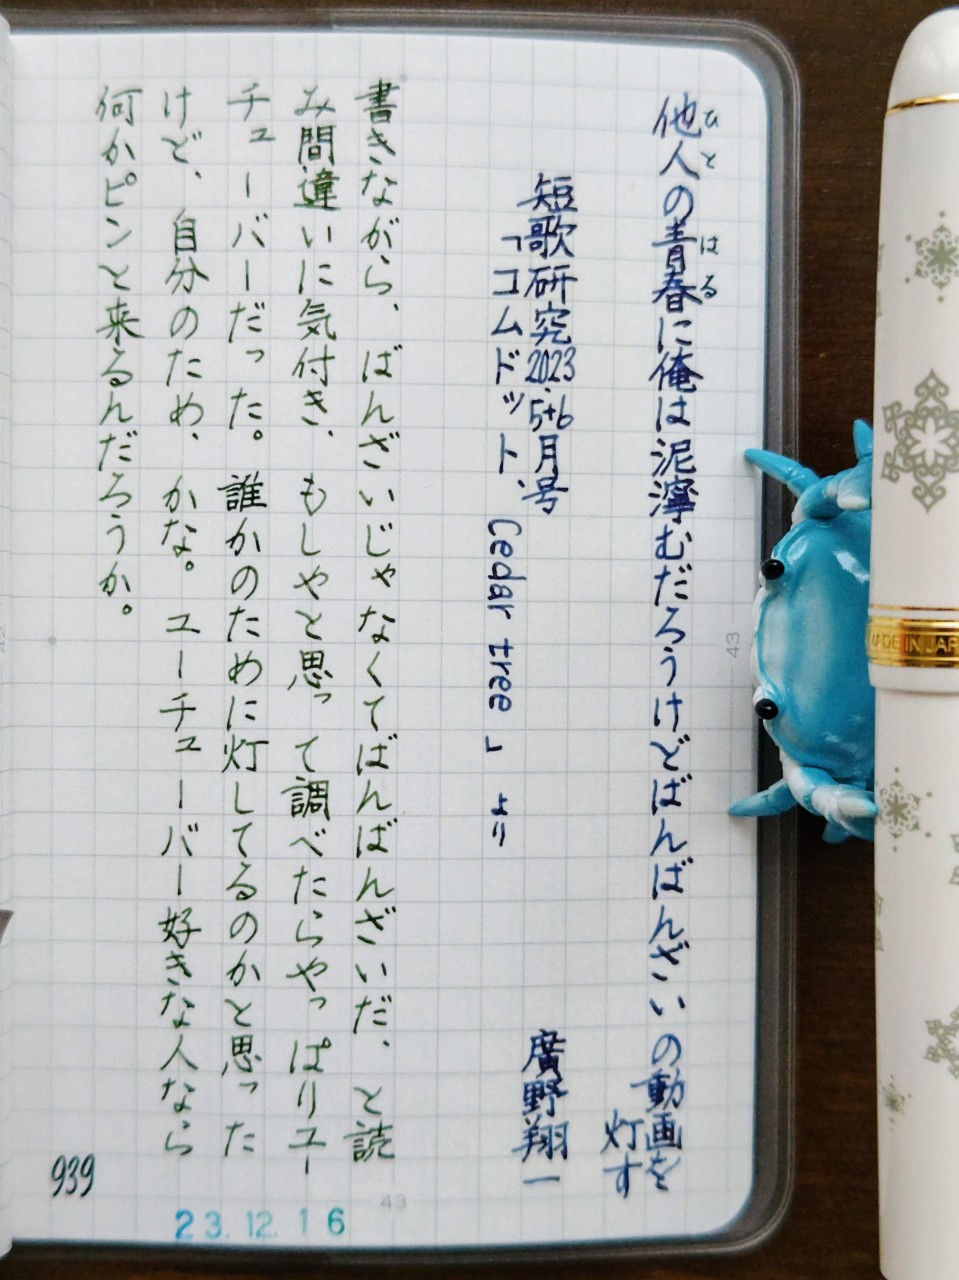 他人の青春に俺は泥濘むだろうけどばんばんざいの動画を
ひと
はる
灯す
短歌研究2023.5+6月号
廣野翔一
「コムドット、Cedar tree」より
書きながら、ばんざいじゃなくてばんばんざいだ、と読
み間違いに気付き、もしやと思って調べたらやっぱりユー
チューバーだった。誰かのために灯してるのかと思った
けど、自分のため、かな。ユーチューバー好きな人なら
何かピンと来るんだろうか。
939
23.12.16
43
43
MADE IN JAP